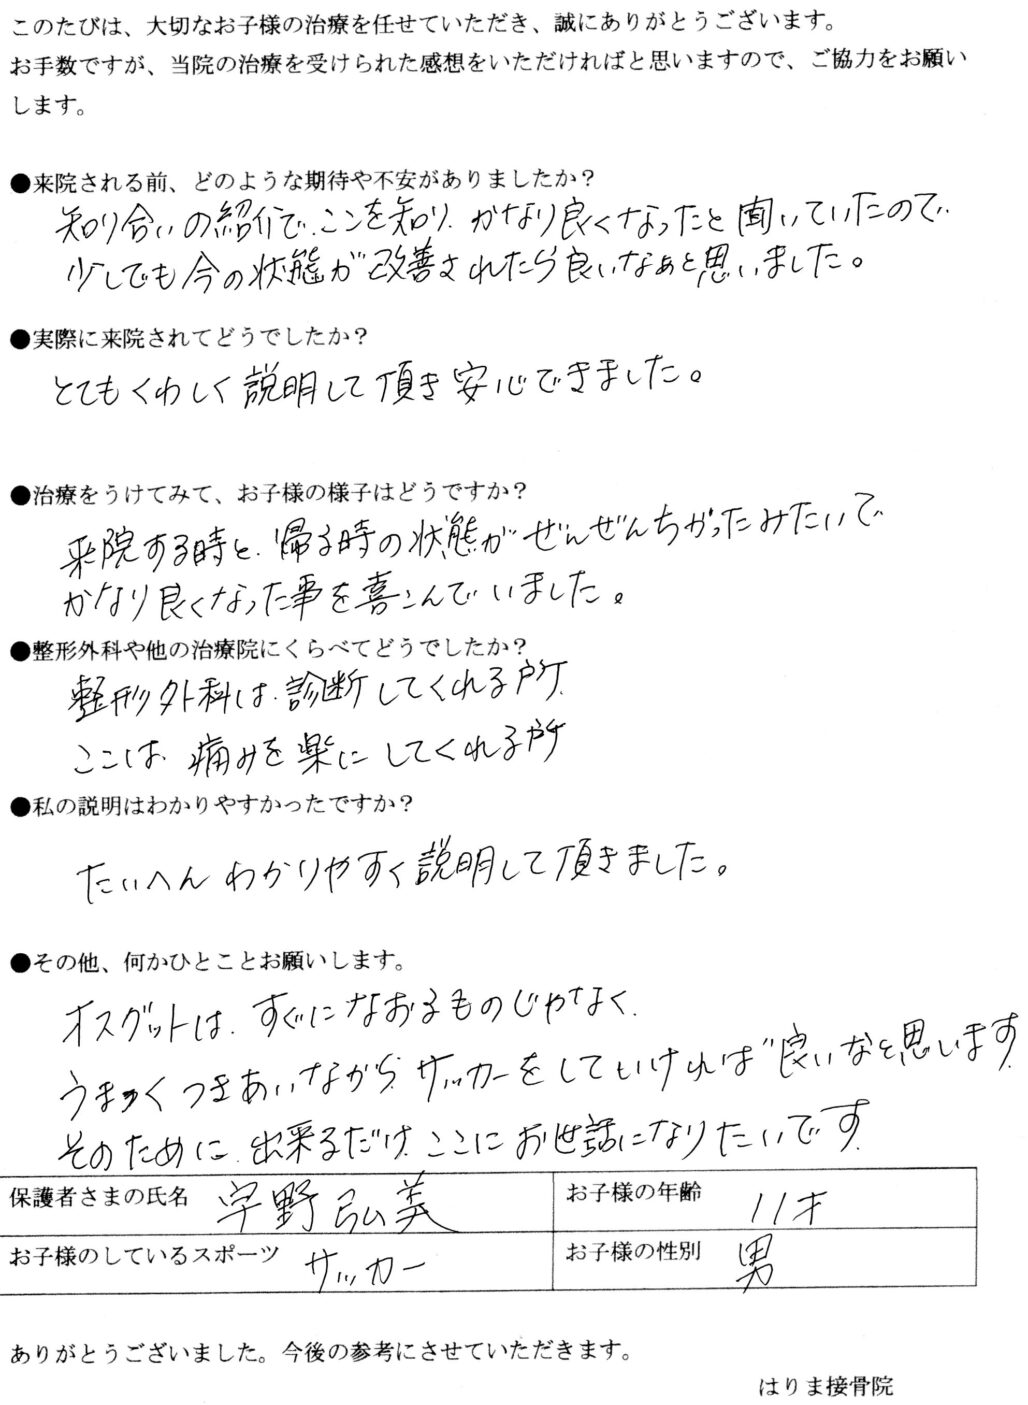 このたびは、大切なお子様の治療を任せていただき、誠にありがとうございます。
お手数ですが、当院の治療を受けられた感想をいただければと思いますので、ご協力をお願い
します。
●来院される前、どのような期待や不安がありましたか？
知り合いの紹介で、ここを知り、かなり良くなったと聞いていたので、
少しでも今の状態が改善されたら良いなぁと思いました。
●実際に来院されてどうでしたか？
とてもくわしく説明して頂き安心できました。
●治療をうけてみて、お子様の様子はどうですか？
来院する時と、帰る時の状態がぜんぜんちがったみたいで
かなり良くなった事を喜こんでいました。
●整形外科や他の治療院にくらべてどうでしたか？
整形外科は、診断してくれる所、
ここは、痛みを楽にしてくれる所
●私の説明はわかりやすかったですか？
たいへんわかりやすく説明して頂きました。
●その他、何かひとことお願いします。
オスグットは、すぐになおるものじゃなく、
うまくつきあいながら、サッカーをしていければ良いなと思います
そのために、出来るだけ、ここにお世話になりたいです
保護者さまの氏名 宇野弘美 お子様の年齢 11才
お子様のしているスポーツ サッカー お子様の性別 男
ありがとうございました。今後の参考にさせていただきます。
はりま接骨院